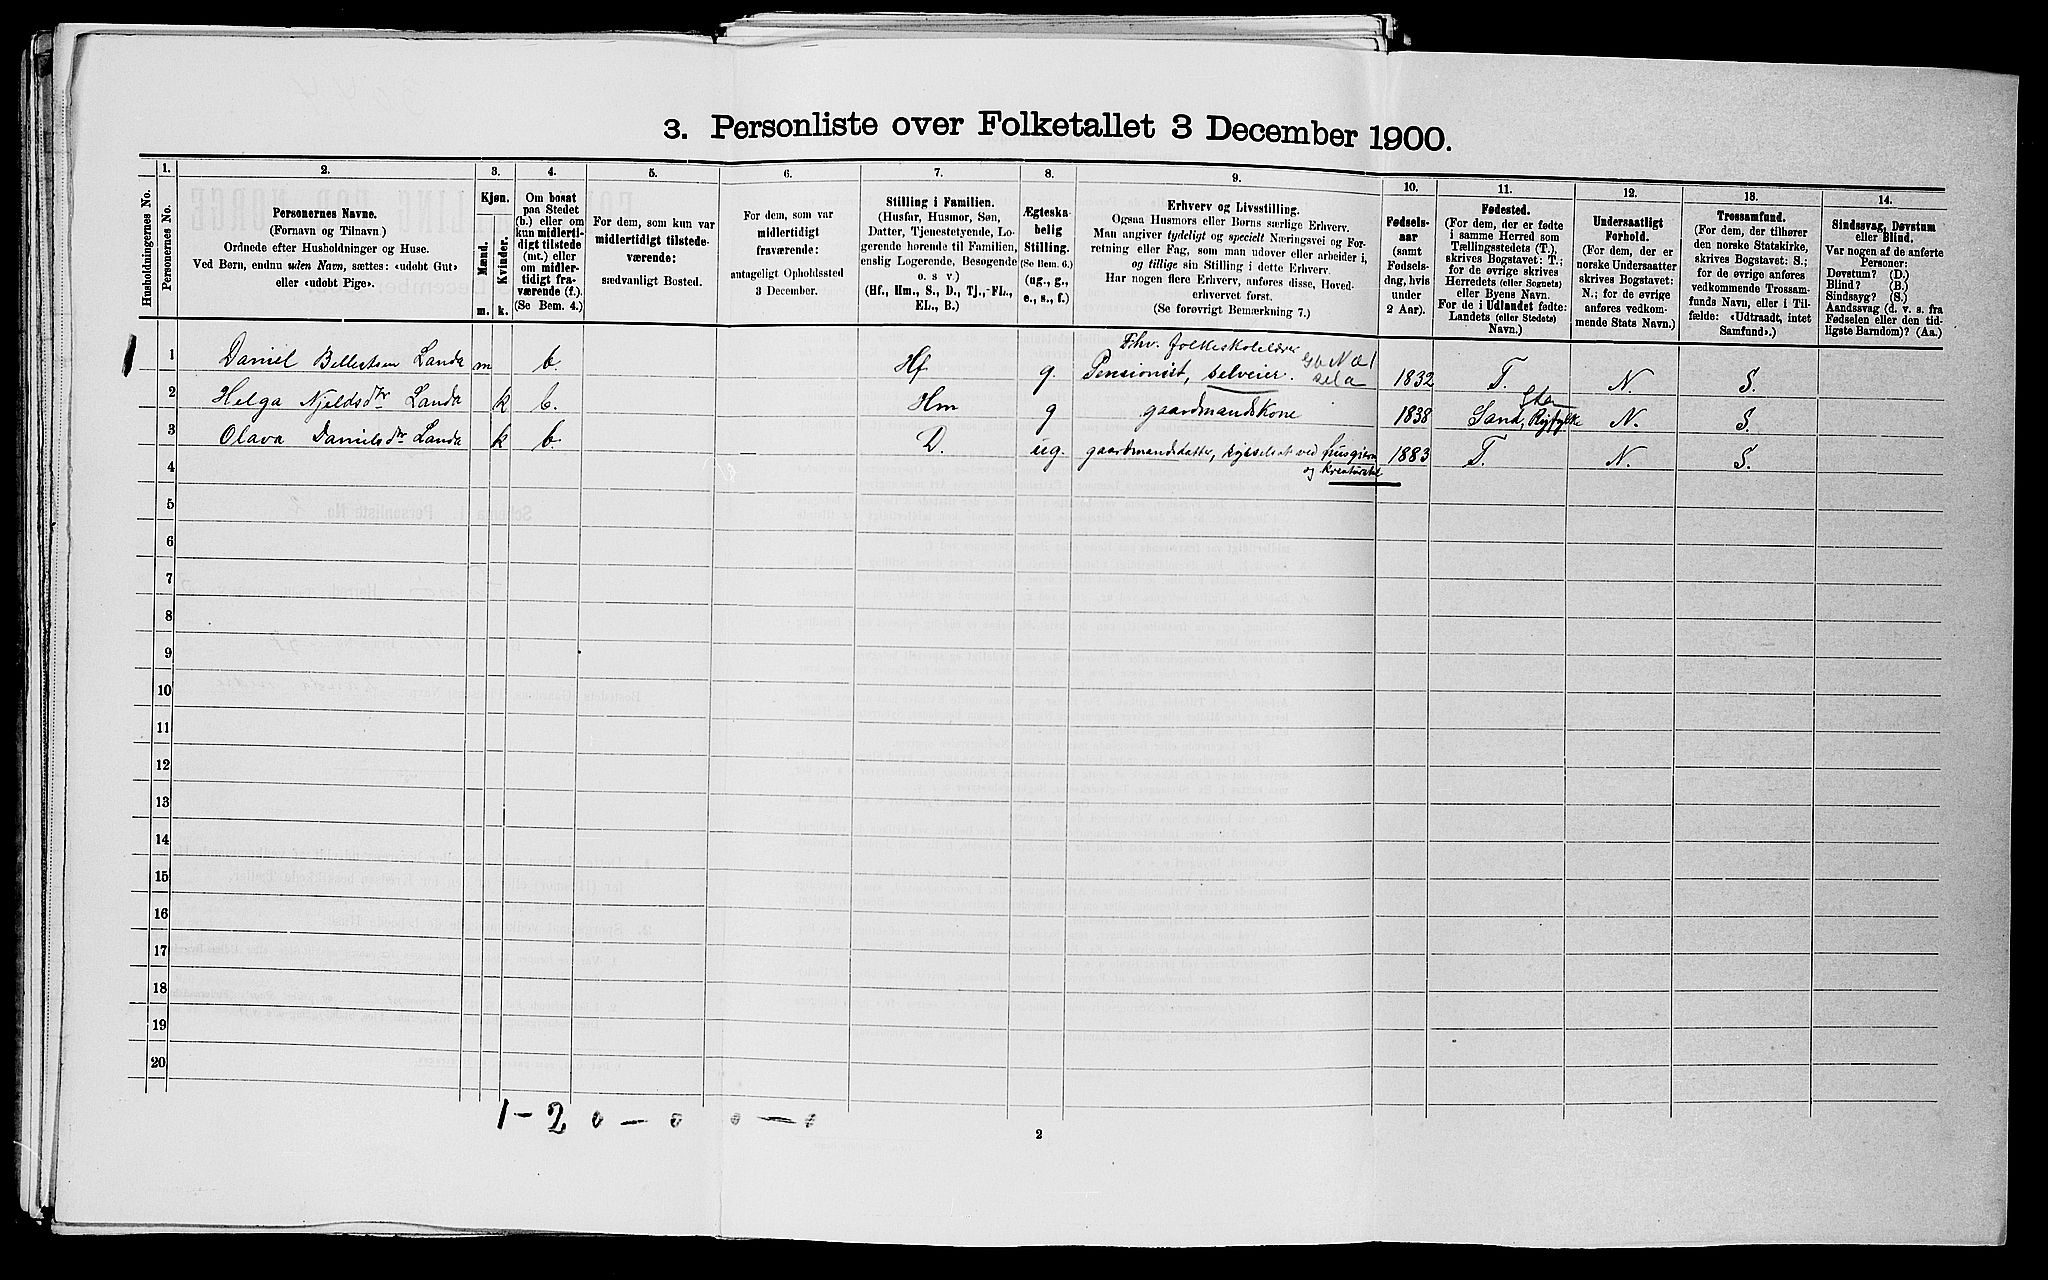 3. Personliste over Folketallet 3 December 1900.
Husholdningernes No.
1.
Personernes No.
2.
Personernes Navne.
(Fornavn og Tilnavn)
Ordnede efter Husholdninger og Huse.
Ved Børn, endnu uden Navn, sættes: «udøbt Gut»
eller «udøbt Pige».
3.
Kjøn.
Mænd.
Kvinder.
m.
k.
4.
Om bosat
paa Stedet
(b.) eller om
kun midlertidigt
tilstede
(mt.) eller
om midlertidigt
fraværende
(f.)
(Se Bem. 4.)
5.
For dem, som kun var
midlertidigt tilstedeværende:
sædvanligt Bosted.
6.
For dem, som var
midlertidigt
fraværende:
antageligt Opholdssted
3 December.
7.
Stilling i Familien.
(Husfar, Husmor, Søn,
Datter, Tjenestetyende, Logerende
hørende til Familien,
enslig Logerende, Besøgende
o. s v.)
(Hf., Hm., S., D., Tj., FL.,
EL., B.)
8.
Ægteskabelig
Stilling.
(Se Bem. 6.)
(ug., g.,
e., s., f.)
9.
Erhverv og Livsstilling.
Ogsaa Husmors eller Børns særlige Erhverv.
Man angiver tydeligt og specielt Næringsvei og Forretning
eller Fag, som man udøver eller arbeider i,
og tillige sin Stilling i dette Erhverv.
Har nogen flere Erhverv, anføres disse, Hovederhvervet
først.
(Se forøvrigt Bemærkning 7.)
10.
Fødselsaar
(samt
Fødselsdag,
hvis
under
2 Aar).
11.
Fødested.
(For dem, der er fødte
i samme Herred som
Tællingsstedets (T.),
skrives Bogstavet: T.;
for de øvrige skrives
Herredets (eller Sognets)
eller Byens Navn.
For de i Udlandet fødte:
Landets (eller Stedets)
Navn.)
12.
Undersaatligt
Forhold.
(For dem, der er
norske Undersaatter
skrives Bogstavet:
N.; for de øvrige
anføres vedkommende
Stats Navn.)
13.
Trossamfund.
(For dem, der tilhører
den norske Statskirke,
skrives Bogstavet: S.;
for de øvrige anføres
vedkommende Trossamfunds
Navn, eller i Tilfælde:
«Udtraadt, intet
Samfund».)
14.
Sindssvag, Døvstum
eller Blind.
Var nogen af de anførte
Personer:
Døvstum? (D.)
Blind? (B.)
Sindssyg? (S.)
Aandssvag (d. v. s. fra
Fødselen eller den tidligste
Barndom)? (Aa.)
Fhv. folkeskolelærer
1 Daniel Landa m b. Hf g. Pensionist, selveier. 1832 T. N. S.
2 Helga Njeldsdtr Landa k b. Hm g gaardmandskone 1838 Sand, Ryfylke N. S.
3 Olava Danielsdtr Landa k b. D. ug. gaardmandsdatter, sysselsat ved husgjern 1883 T. N. S.
og kreaturstel
4
5
6
7
8
9
10
11
12
13
14
15
16
17
18
19
20
1-2 0 - 0 0 - 0
2